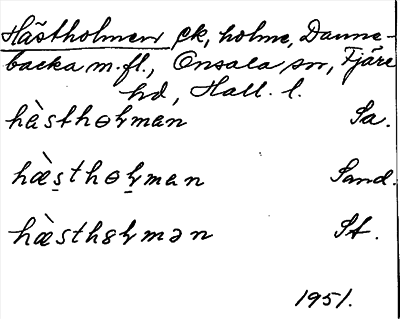 Hästholmen ek, holme, Danne-
backa m. fl., Onsala sn, Fjäre
hd, Hall. l.
hàsthɵɽman Sa.
hæ̀s̠thɵɽ̠man Sand.
hæ̀sthɞɽmən St.
1951.